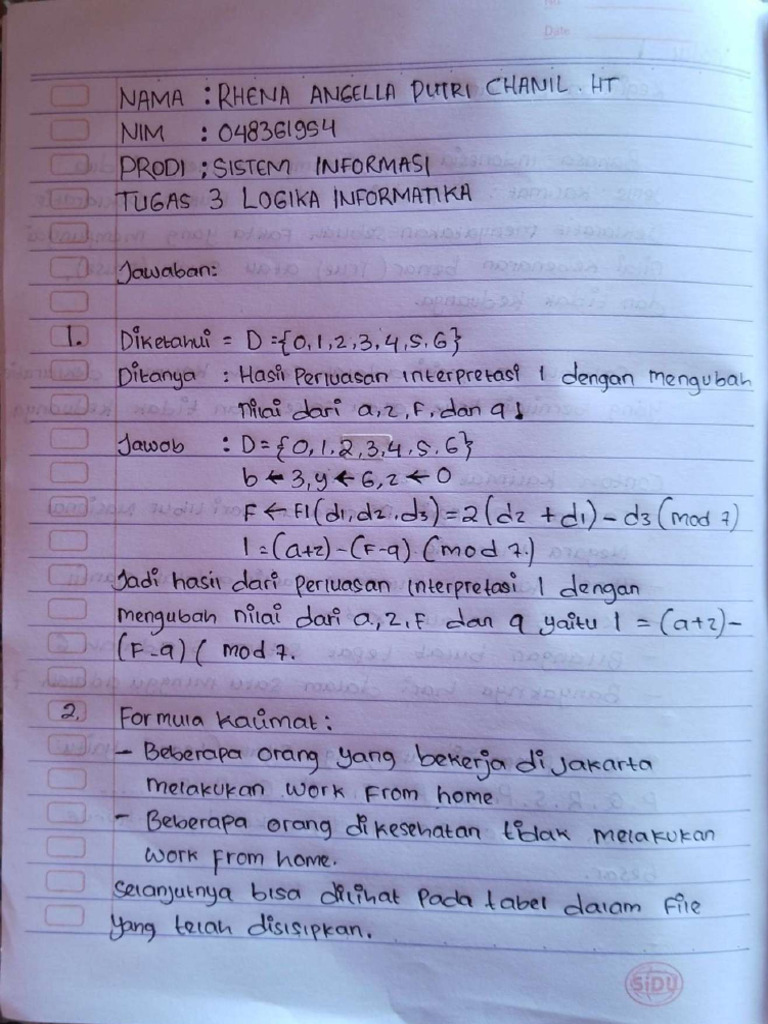 No
Date
NAMA : RHENA ANGELLA PUTRI CHANIL . HT
NIM : 048361954
PRODI : SISTEM INFORMASI
TUGAS 3 LOGIKA INFORMATIKA
Jawaban:
1. Diketahui = D = {0,1,2,3,4,5,6}
Ditanya : Hasil Perluasan interpretasi I dengan mengubah
nilai dari a, z, F, dan q!
Jawab : D = {0,1,2,3,4,5,6}
b ← 3, y ← 6, z ← 0
F ← F1(d1, d2, d3) = 2(d2 + d1) – d3 (mod 7)
I = (a+z) – (F-q) (mod 7.)
Jadi hasil dari Perluasan interpretasi I dengan
mengubah nilai dari a, z, F dan q yaitu I = (a+z) –
(F-q) ( mod 7.
2. Formula kalimat :
– Beberapa orang yang bekerja di Jakarta
melakukan work From home
– Beberapa orang di kesehatan tidak melakukan
work From home.
Selanjutnya bisa dilihat pada tabel dalam File
yang telah disisipkan.
SiDU